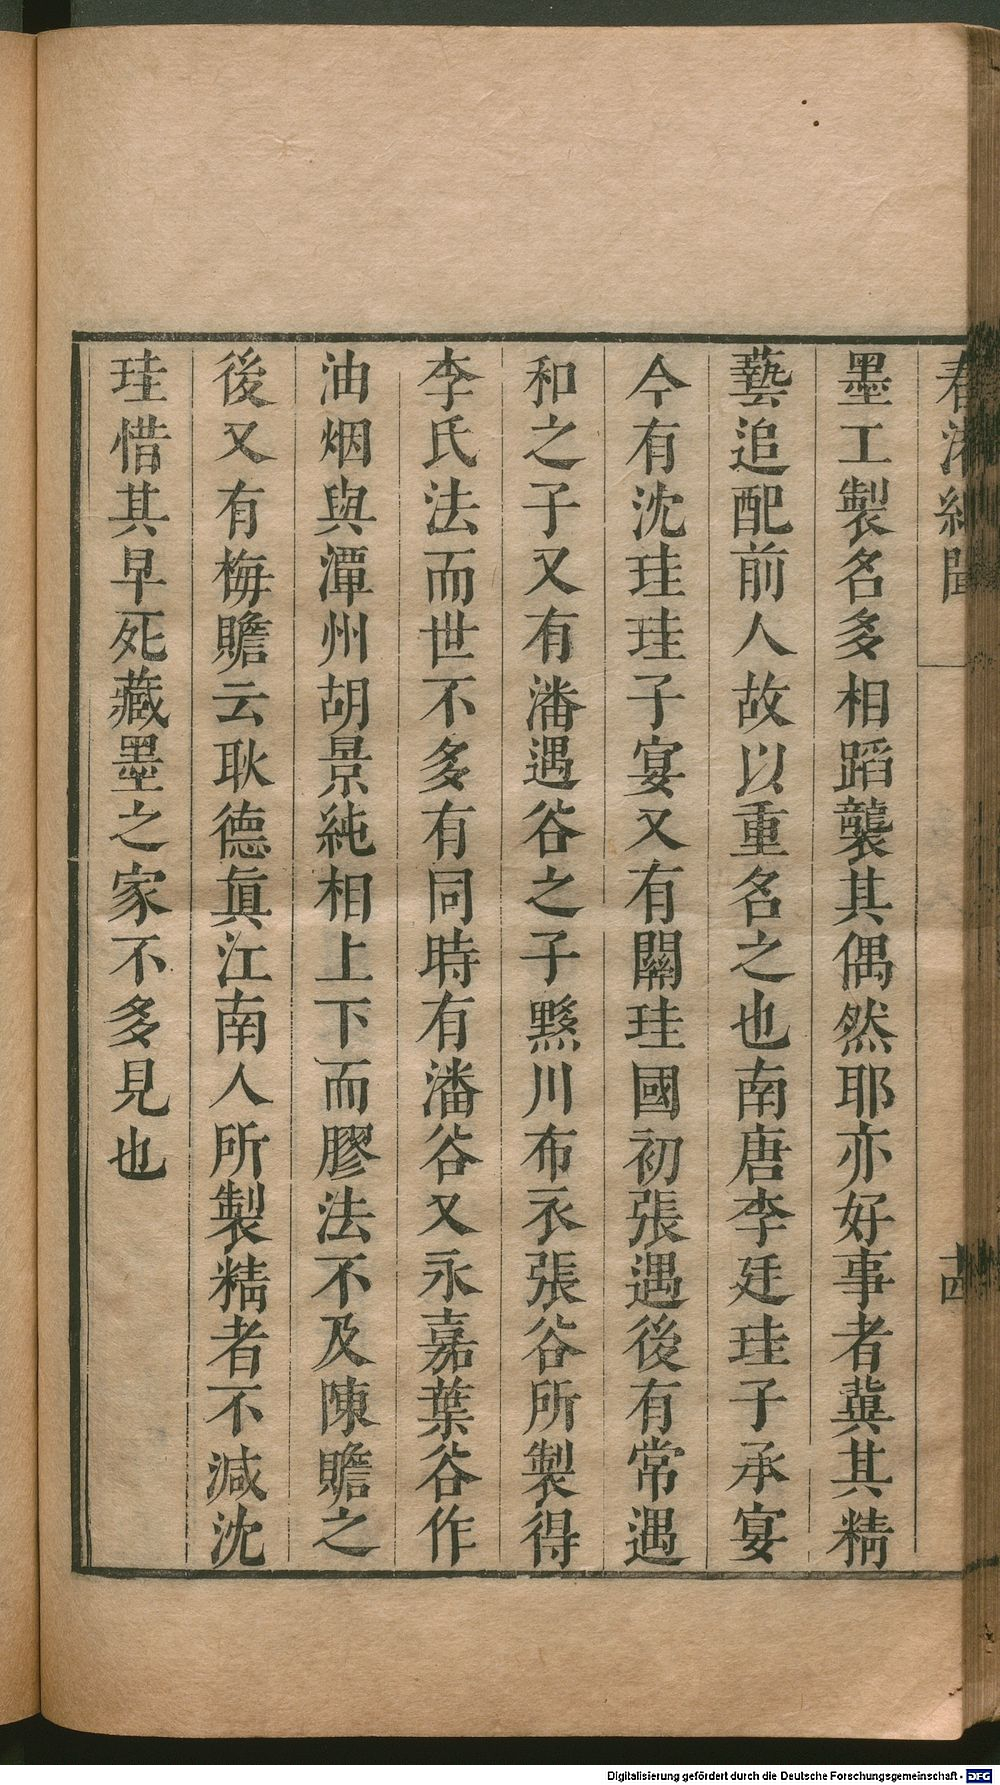 春渚紀聞
十四
墨工製名多相蹈襲其偶然耶亦好事者冀其精
藝追配前人故以重名之也南唐李廷珪子承宴
今有沈珪珪子宴又有關珪國初張遇後有常遇
和之子又有潘遇谷之子黟川布衣張谷所製得
李氏法而世不多有同時有潘谷又永嘉葉谷作
油烟與潭州胡景純相上下而膠法不及陳贍之
後又有梅贍云耿德眞江南人所製精者不減沈
珪惜其早死藏墨之家不多見也
Digitalisierung gefördert durch die Deutsche Forschungsgemeinschaft - DFG